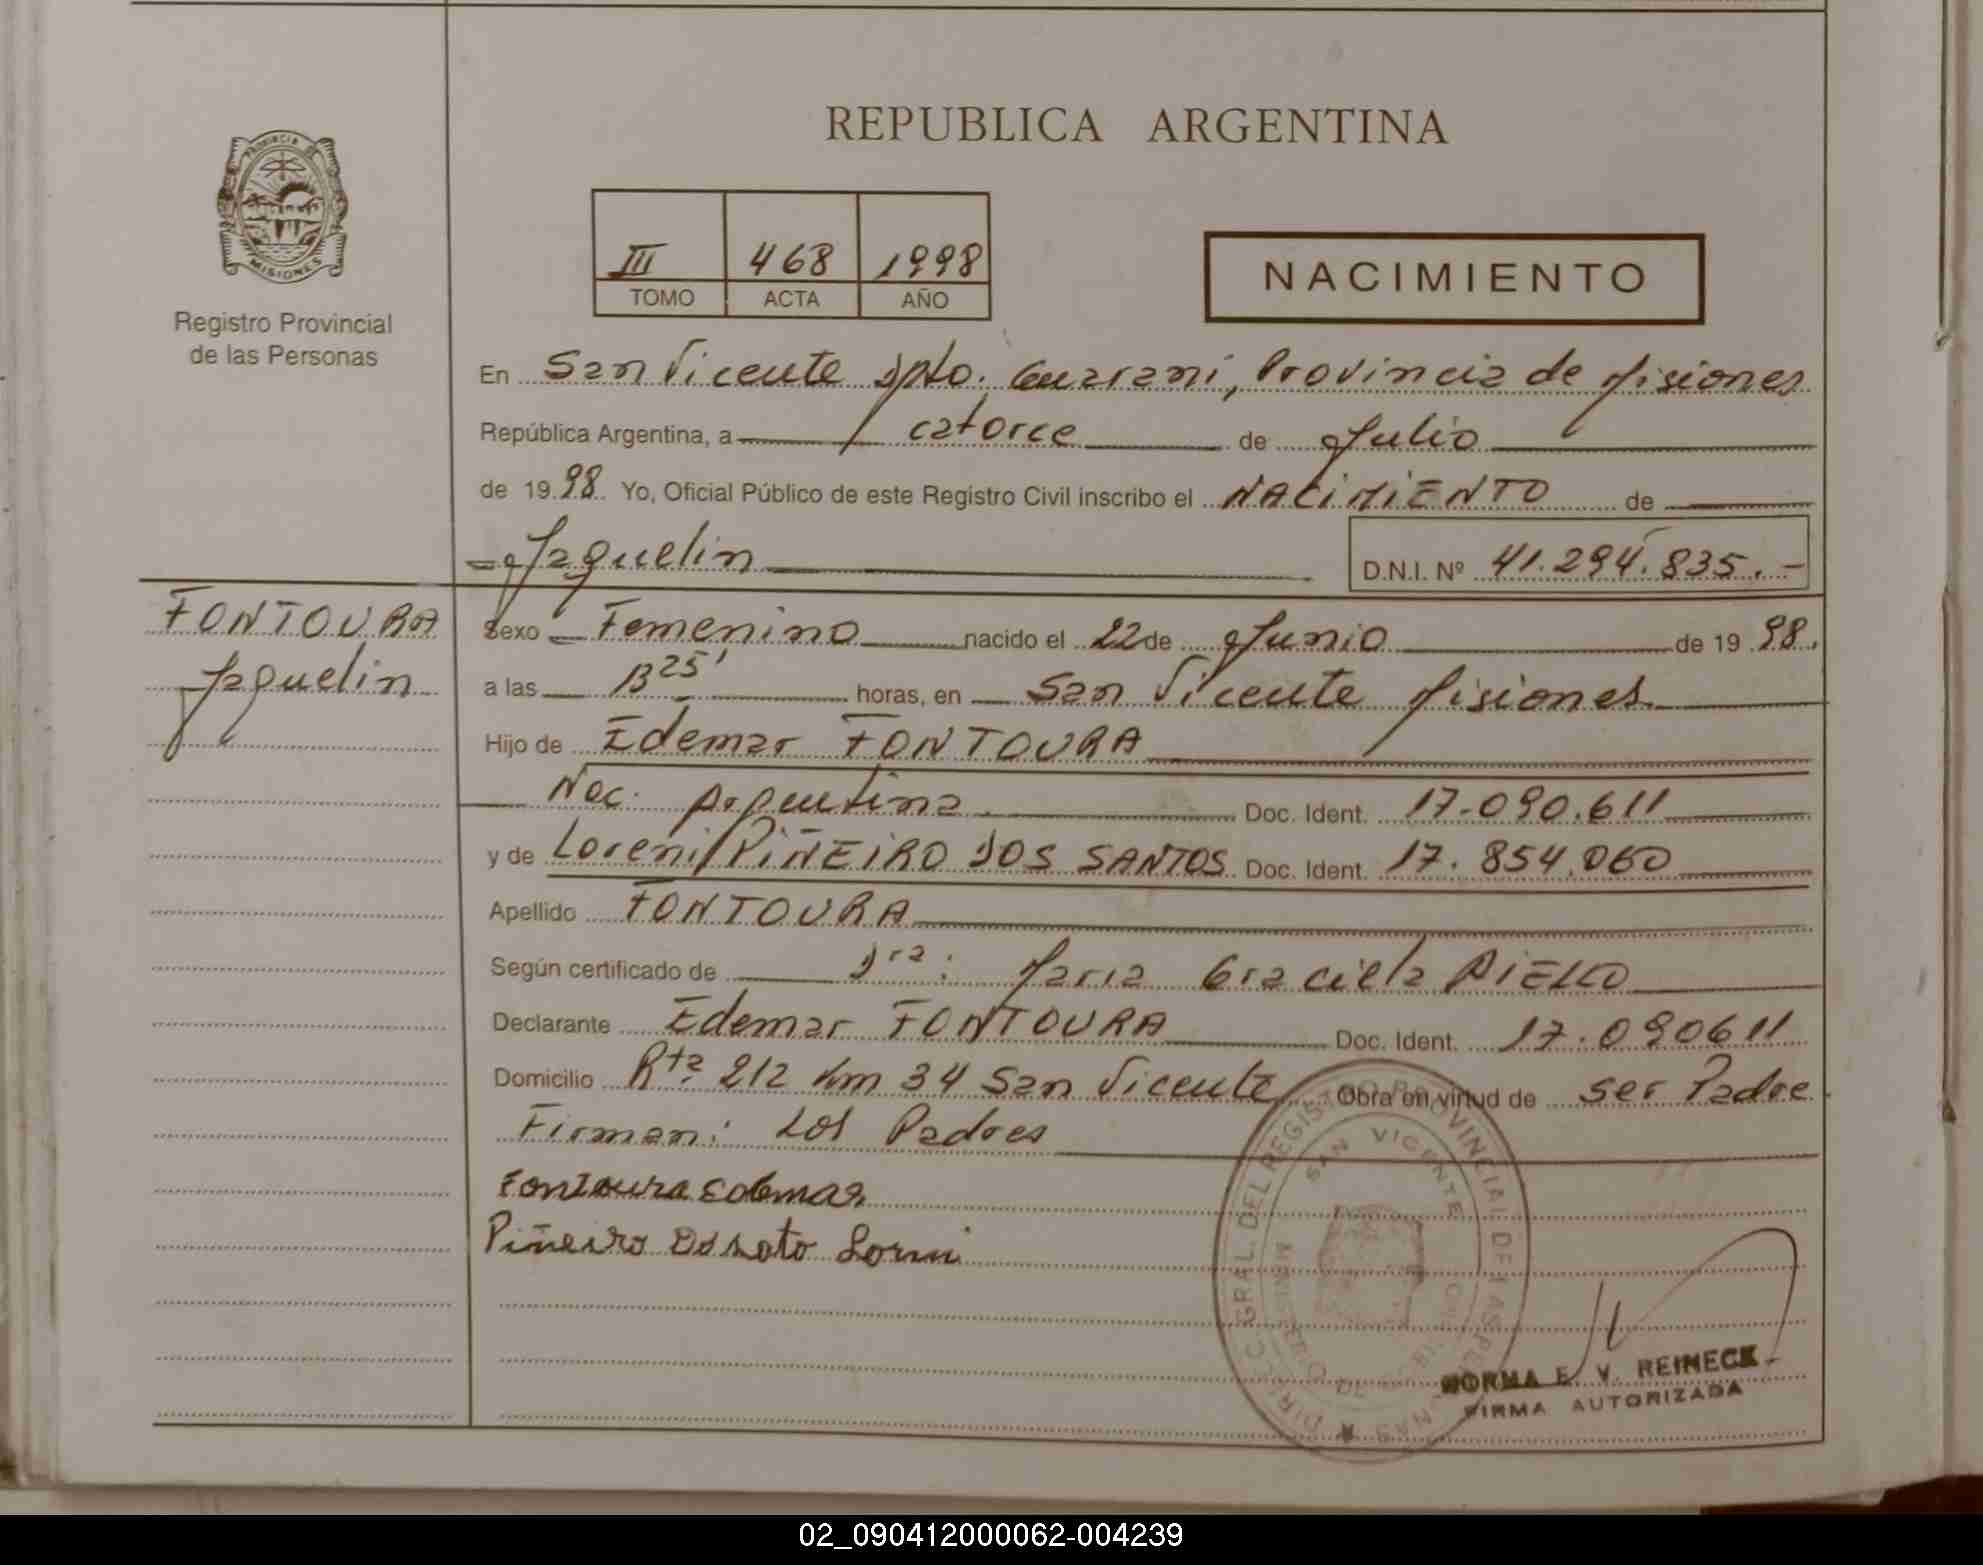 REPUBLICA ARGENTINA
PROVINCIA DE
MISIONES
Registro Provincial
de las Personas
III 468 1998
TOMO ACTA AÑO
NACIMIENTO
En San Vicente Dpto. Guarani, Provincia de Misiones
República Argentina, a catorce de Julio
de 1998. Yo, Oficial Público de este Registro Civil inscribo el NACIMIENTO de
Jaquelin D.N.I. Nº 41.294.835.-
FONTOURA
Jaquelin
Sexo Femenino nacido el 22 de Junio de 1998.
a las 13 25' horas, en San Vicente Misiones.
Hijo de Edemar FONTOURA
Nac. Argentina Doc. Ident. 17.090.611
y de Loreni PIÑEIRO DOS SANTOS Doc. Ident. 17.854.060
Apellido FONTOURA
Según certificado de Dra: Maria Graciela AIELLO
Declarante Edemar FONTOURA Doc. Ident. 17.090611
Domicilio Rta. 212 Km 34 San Vicente Obra en virtud de ser Padre.
Firman: Los Padres
Fontoura Edemar
Piñeiro Lorni
DIRECC. GRAL. DEL REGISTRO PROVINCIAL DE LAS PERSONAS
SAN VICENTE
NORMA E. V. REINECK
FIRMA AUTORIZADA
02_090412000062-004239